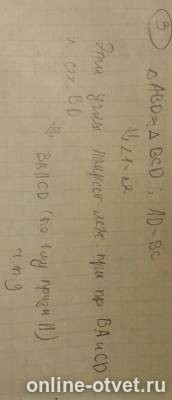 3
△ABD = △BCD; AD = BC
⇓
∠1 = ∠2
Эти углы накрест леж. при пр BA и CD
и сек. BD
⇓
BA || CD (по 1му призн ||)
ч.т.д
online-otvet.ru